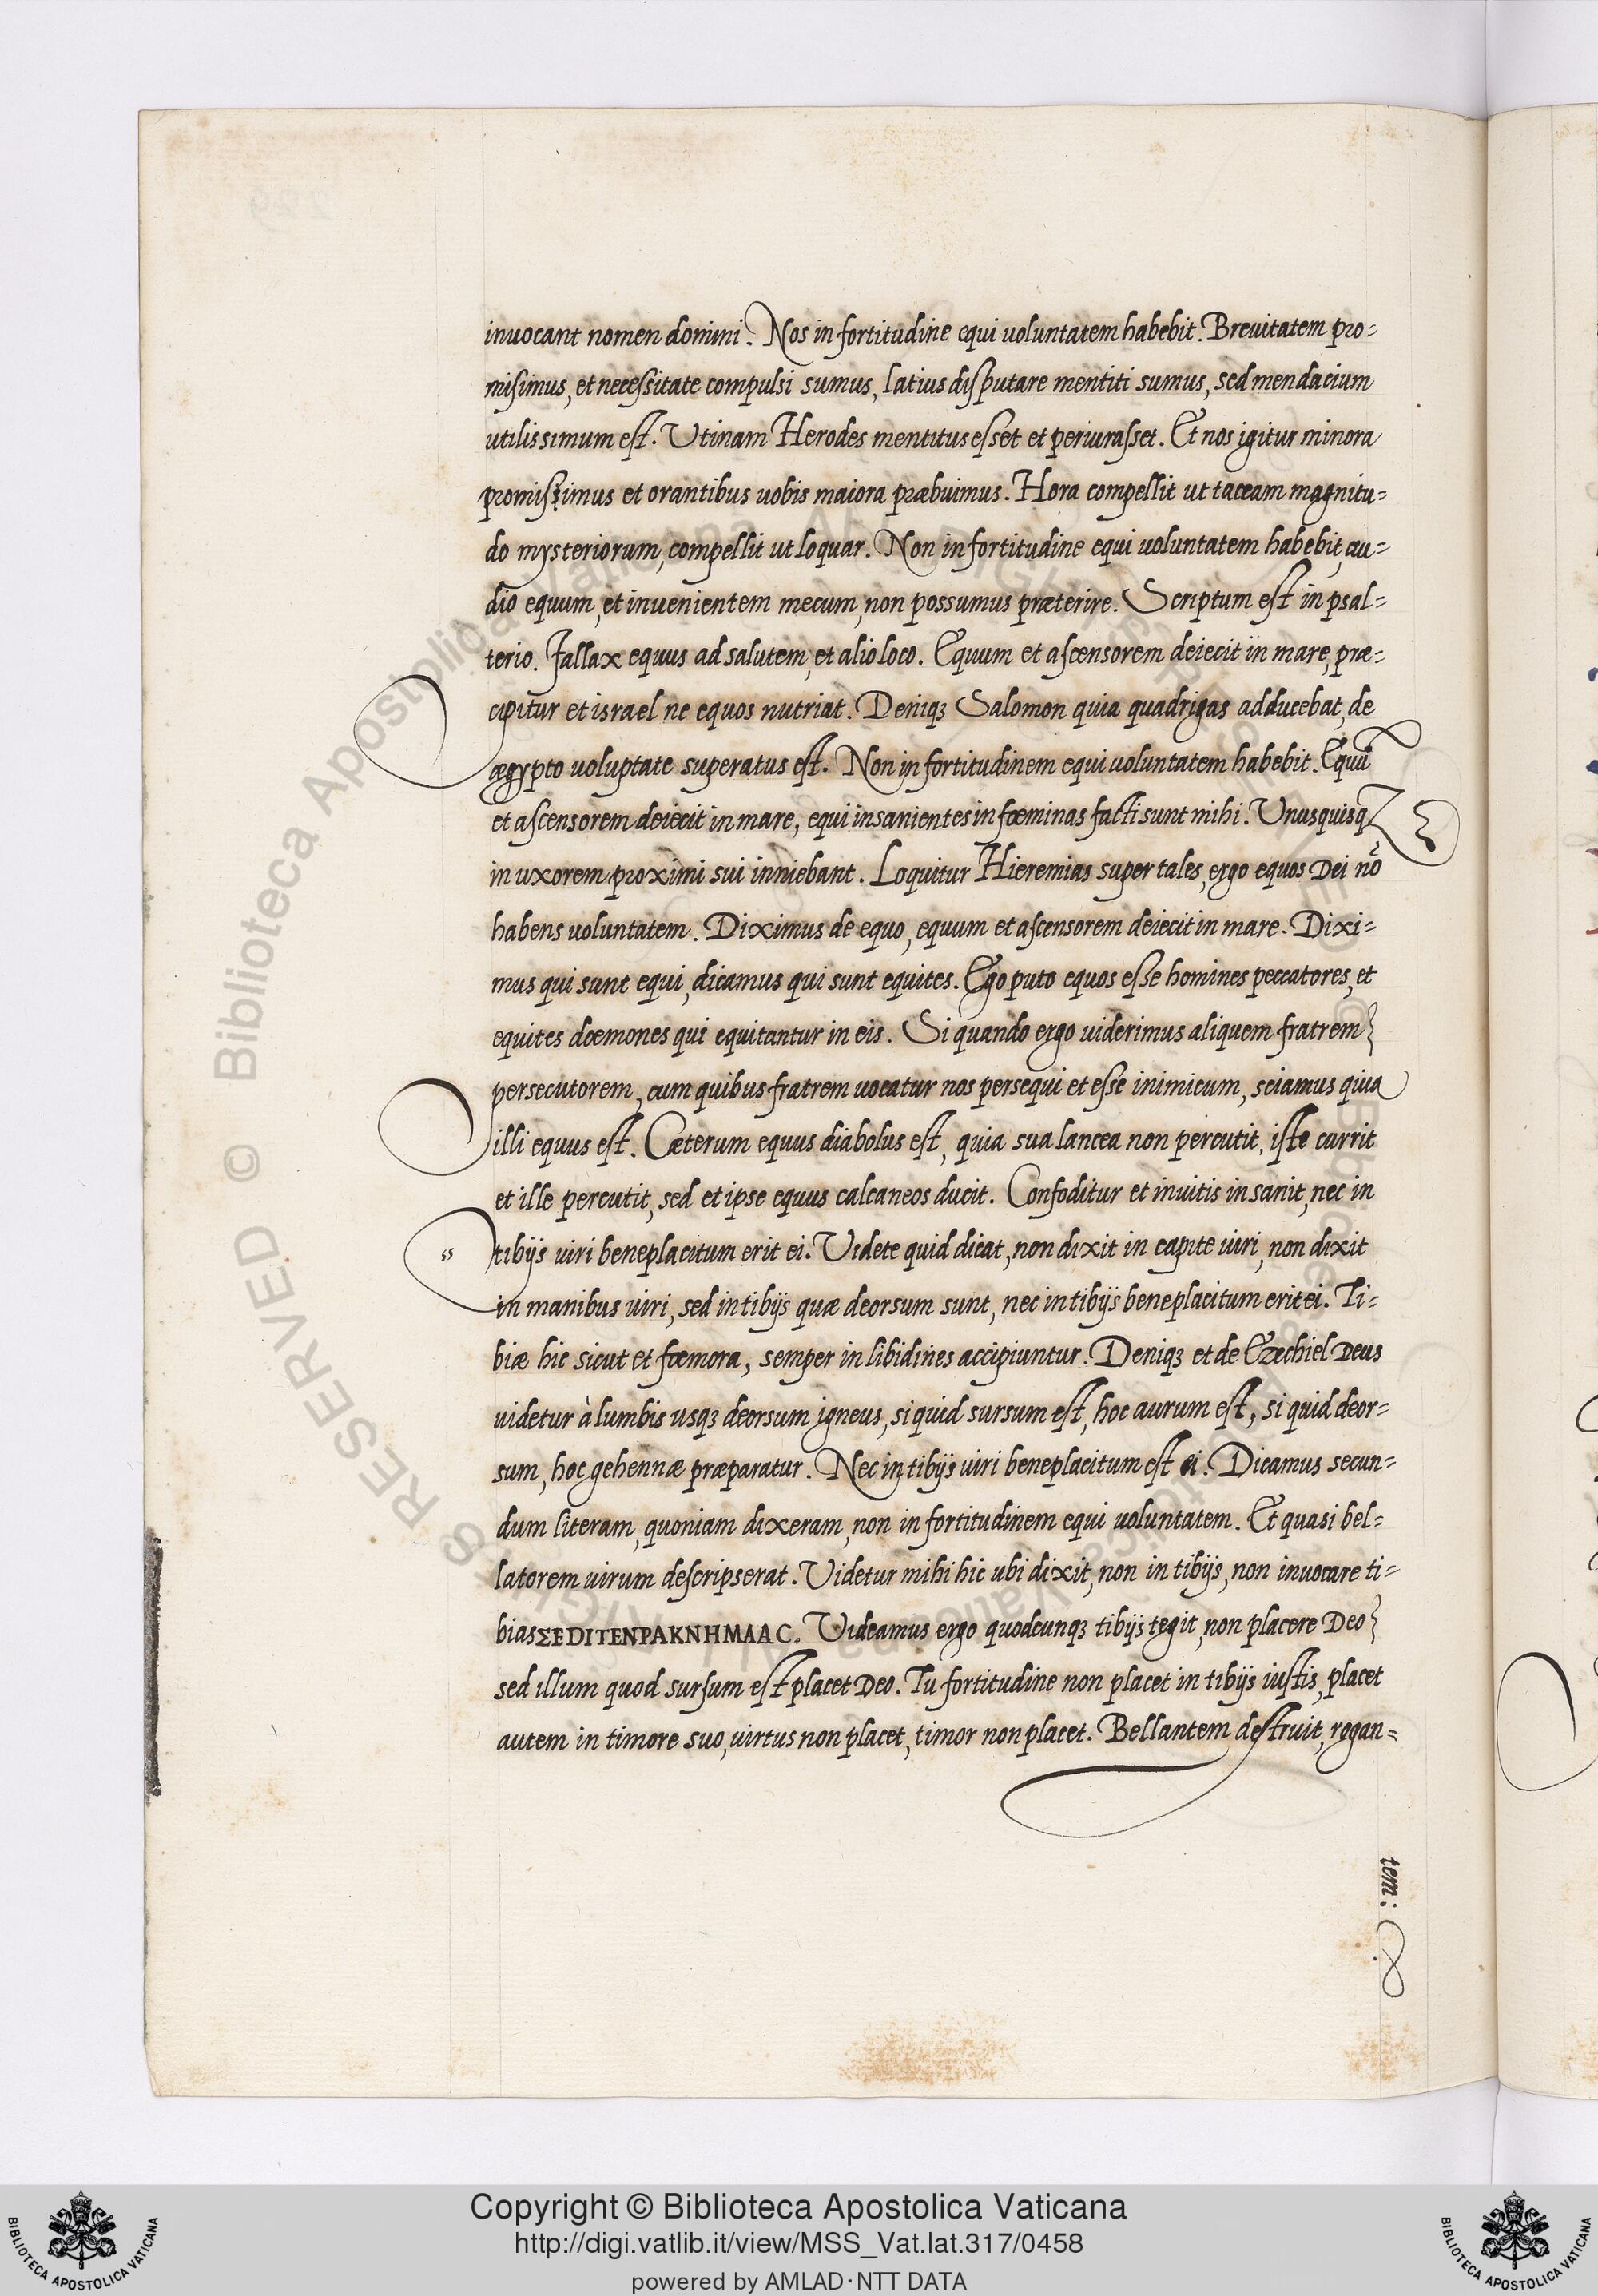 inuocant nomen domini. Nos in fortitudine equi uoluntatem habebit. Breuitatem pro=
misimus, et necessitate compulsi sumus, latius disputare mentiti sumus, sed mendacium
utilissimum est. Utinam Herodes mentitus esset et periurasset. Et nos igitur minora
promissimus et orantibus uobis maiora præbuimus. Hora compellit ut taceam magnitu=
do mysteriorum, compellit ut loquar. Non in fortitudine equi uoluntatem habebit, au=
dio equum, et inuenientem mecum, non possumus præterire. Scriptum est in psal=
terio. Fallax equus ad salutem, et alio loco. Equum et ascensorem deiecit in mare, præ=
cipitur et israel ne equos nutriat. Deniqꝫ Salomon quia quadrigas adducebat, de
ægypto uoluptate superatus est. Non in fortitudinem equi uoluntatem habebit. Equũ
et ascensorem deiecit in mare, equi insanientes in fœminas facti sunt mihi. Unusquisqꝫ
in uxorem proximi sui inniebant. Loquitur Hieremias super tales, ergo equos Dei nõ
habens uoluntatem. Diximus de equo, equum et ascensorem deiecit in mare. Dixi=
mus qui sunt equi, dicamus qui sunt equites. Ego puto equos esse homines peccatores, et
equites dœmones qui equitantur in eis. Si quando ergo uiderimus aliquem fratrem
persecutorem, cum quibus fratrem uocatur nos persequi et esse inimicum, sciamus qiua
illi equus est. Cæterum equus diabolus est, quia sua lancea non percutit, iste currit
et ille percutit, sed et ipse equus calcaneos ducit. Confoditur et inuitis insanit, nec in
tibijs uiri beneplacitum erit ei. Uidete quid dicat, non dixit in capite uiri, non dixit
in manibus uiri, sed in tibijs quæ deorsum sunt, nec in tibijs beneplacitum erit ei. Ti=
biæ hic sicut et fœmora, semper in libidines accipiuntur. Deniqꝫ et de Ezechiel Deus
uidetur à lumbis usqꝫ deorsum igneus, si quid sursum est, hoc aurum est, si quid deor=
sum, hoc gehennæ præparatur. Nec in tibijs uiri beneplacitum est ei. Dicamus secun=
dum literam, quoniam dixeram, non in fortitudinem equi uoluntatem. Et quasi bel=
latorem uirum descripserat. Uidetur mihi hic ubi dixit, non in tibijs, non inuocare ti=
bias ΣEDITENPAKNHMAAC. Uideamus ergo quodcunqꝫ tibijs tegit, non placere Deo
sed illum quod sursum est placet Deo. Tu fortitudine non placet in tibijs iustis, placet
autem in timore suo, uirtus non placet, timor non placet. Bellantem destruit, rogan=
tem:
Copyright © Biblioteca Apostolica Vaticana
http://digi.vatlib.it/view/MSS_Vat.lat.317/0458
powered by AMLAD·NTT DATA
BIBLIOTECA APOSTOLICA VATICANA
BIBLIOTECA APOSTOLICA VATICANA